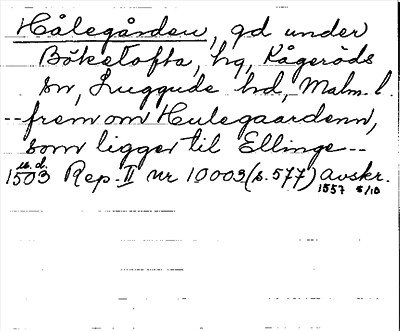 Hålegården, gd under
Bökelofta, hg, Kågeröds
sn, Luggude hd, Malm. l.
--frem om Hulegaardenn,
som ligger til Ellinge--
u.d.
1503 Rep. II nr 10003 (s. 577) Avskr.
1557 5/10